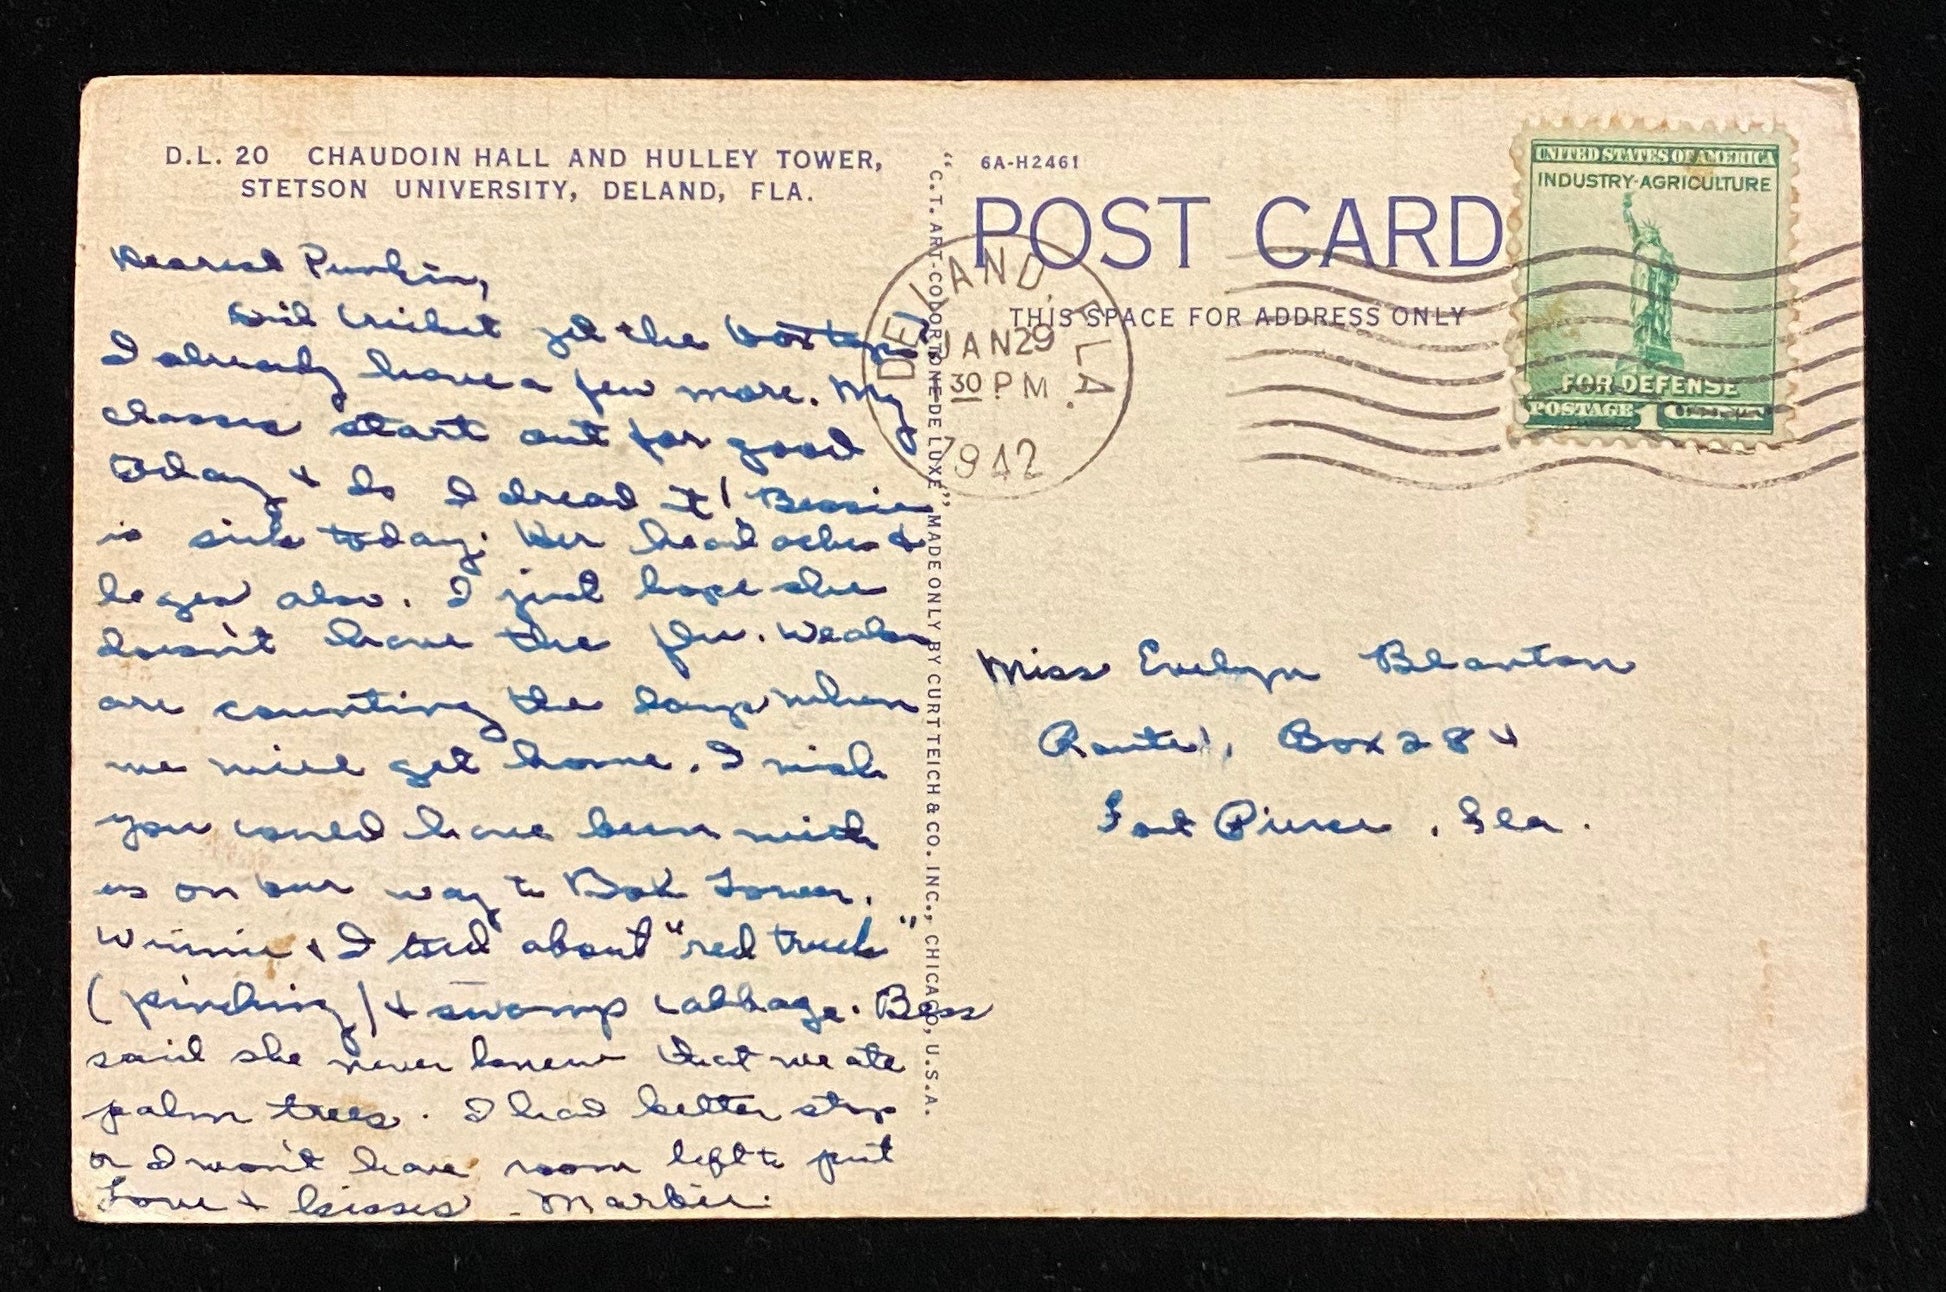 D.L. 20 CHAUDOIN HALL AND HULLEY TOWER,
STETSON UNIVERSITY, DELAND, FLA.
Dearest Punkin,
Did Cricket get the box tops?
I already have a few more. My
classes start out for good
today & do I dread it! Bessie
is sick today. Her head aches &
leges also. I just hope she
doesn't have the flu. We also
are counting the days when
we will get home. I wish
you could have been with
us on our way to Bok Tower.
Winnie & I told about "red truck"
(pinching) & swamp cabbage. Bess
said she never knew that we ate
palm trees. I had better stop
or I won't have room left to put
Love & kisses - Marbie.
"C.T. ART-COLORTONE DE LUXE" MADE ONLY BY CURT TEICH & CO. INC., CHICAGO, U.S.A.
6A-H2461
POST CARD
THIS SPACE FOR ADDRESS ONLY
DELAND, FLA.
JAN 29
30 PM
1942
UNITED STATES OF AMERICA
INDUSTRY·AGRICULTURE
FOR DEFENSE
POSTAGE 1
Miss Evelyn Blanton
Route 1, Box 284
Fort Pierce, Fla.